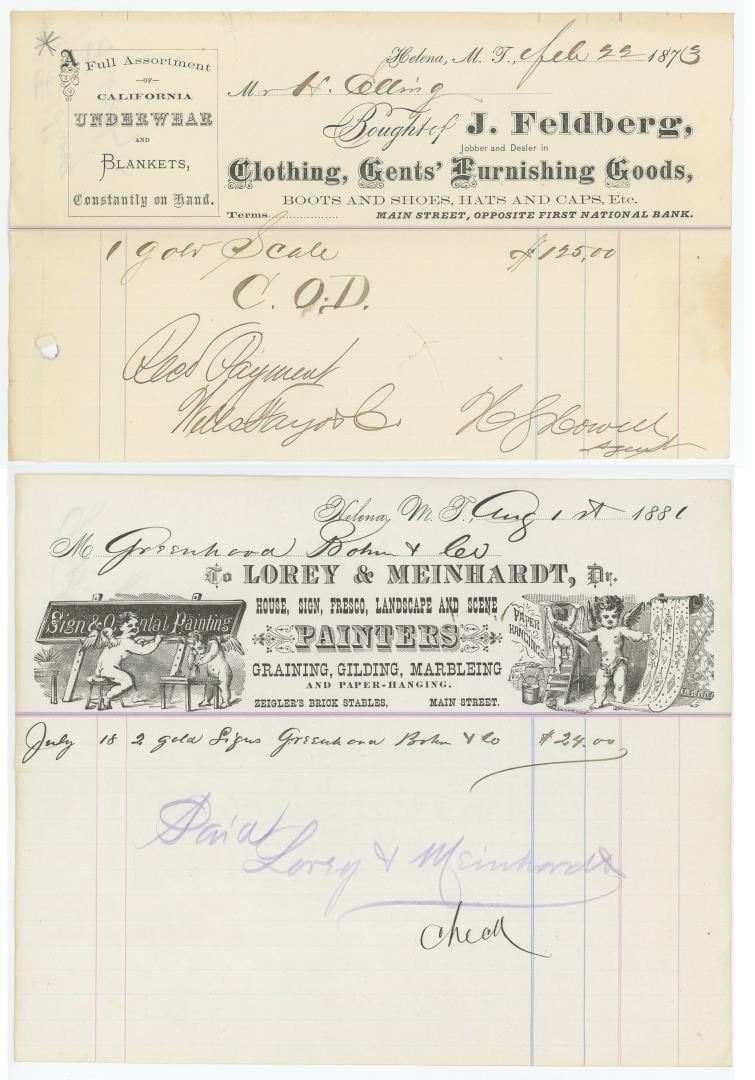 A Full Assortment
-OF-
CALIFORNIA
UNDERWEAR
AND
BLANKETS,
Constantly on Hand.
Helena, M. T., Feb 22 1873
Mr H. Elling
Bought of J. Feldberg,
Jobber and Dealer in
Clothing, Gents' Furnishing Goods,
BOOTS AND SHOES, HATS AND CAPS, Etc.
Terms MAIN STREET, OPPOSITE FIRST NATIONAL BANK.
1 gold Scale $125.00
C. O. D.
Recd Payment
Wells Fargo & Co. Howell
Agent
Helena, M. T., Aug 1st 1881
M Greenhood Bohm & Co
To LOREY & MEINHARDT, Dr.
HOUSE, SIGN, FRESCO, LANDSCAPE AND SCENE
PAINTERS
GRAINING, GILDING, MARBLEING
AND PAPER-HANGING.
ZEIGLER'S BRICK STABLES, MAIN STREET.
Sign & O ntal Painting
PAPER HANGINGS
July 18 2 gold Signs Greenhood Bohm & Co $24.00
Paid
Lorey & Meinhardt
Check